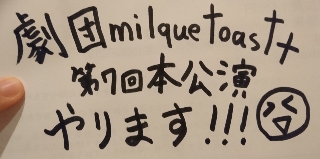 劇団milquetoast††
第7回本公演
やります!!!